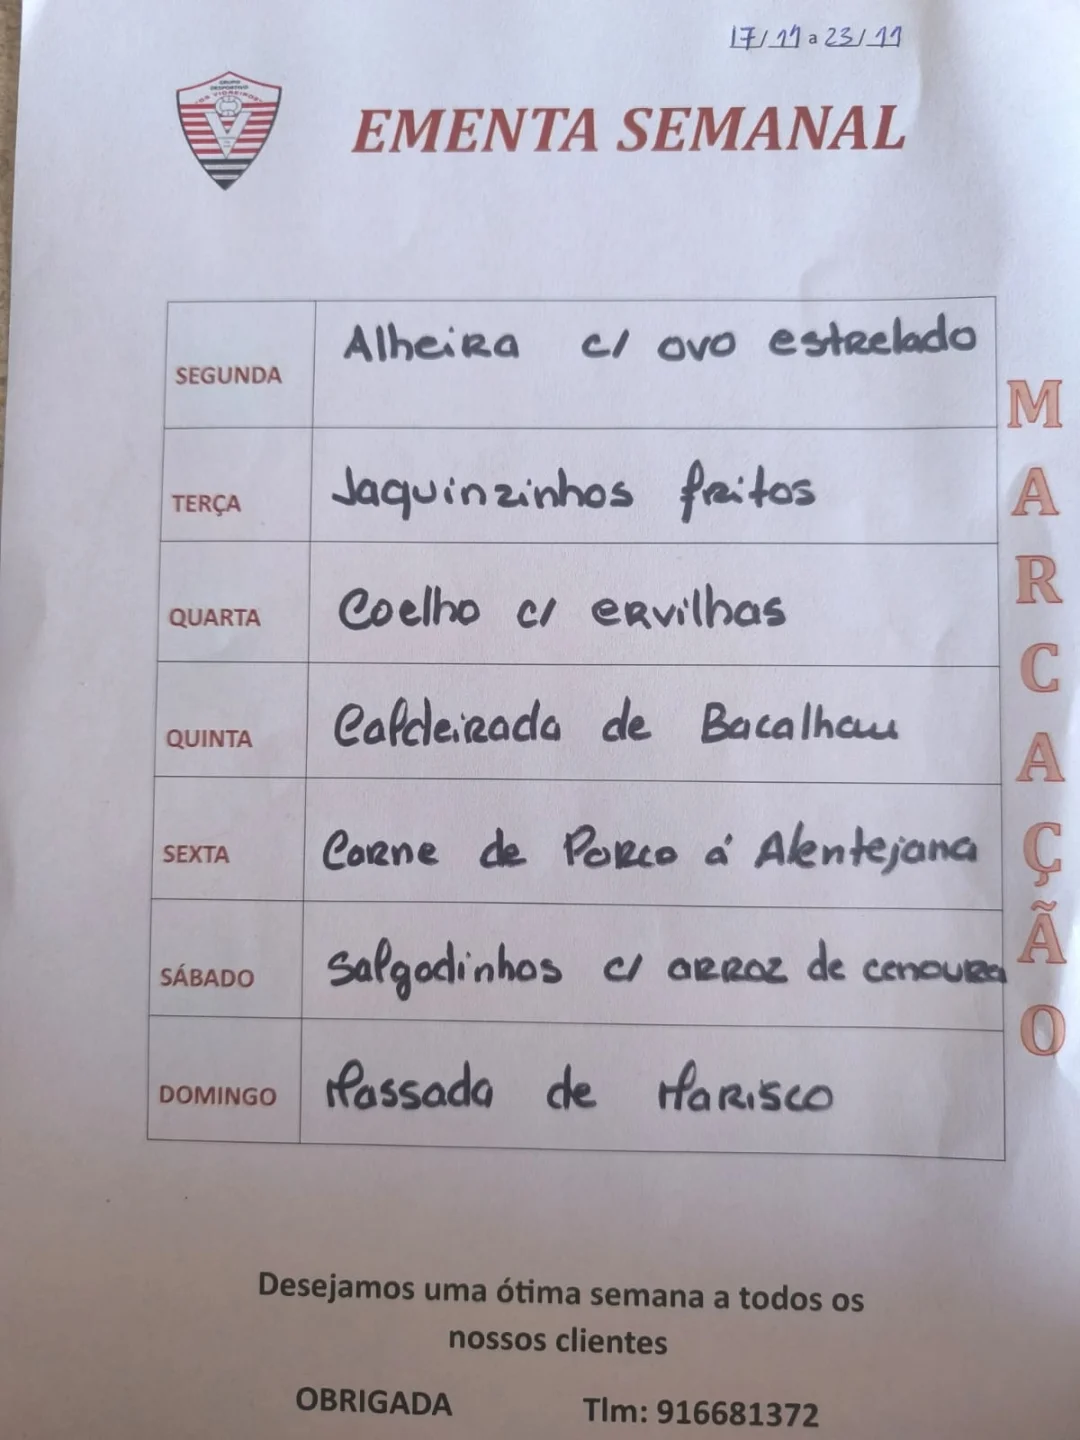 17/11 a 23/11
GRUPO
DESPORTIVO
EMENTA SEMANAL
SEGUNDA
Alheira c/ ovo estrelado
TERÇA
Jaquinzinhos fritos
QUARTA
Coelho c/ ervilhas
QUINTA
Caldeirada de Bacalhau
SEXTA
Carne de Porco á Alentejana
SÁBADO
Salgadinhos c/ arroz de cenoura
DOMINGO
Massada de Marisco
MARCAÇÃO
Desejamos uma ótima semana a todos os
nossos clientes
OBRIGADA Tlm: 916681372